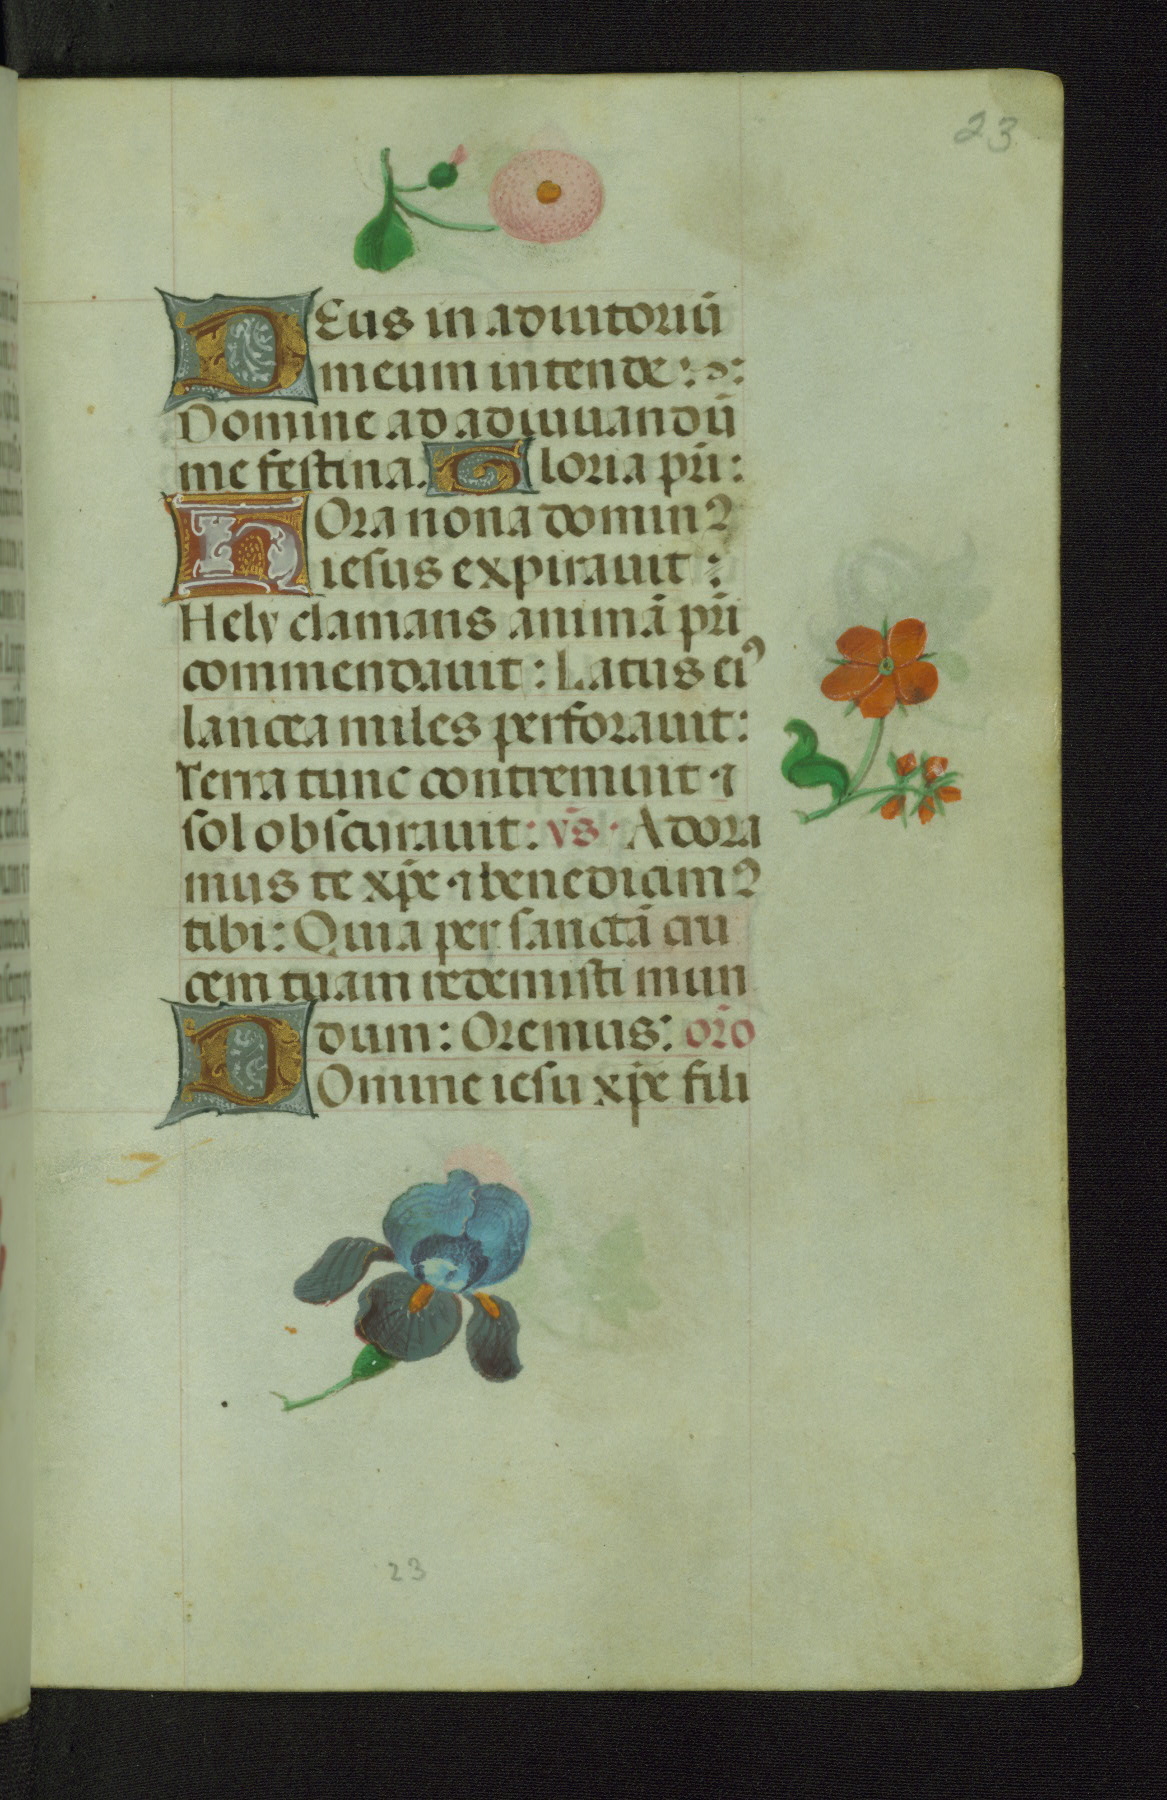 23
Deus in adiutoriū
meum intende :
Domine ad adiuuandū
me festina. Gloria pr̄i :
Hora nona domin⁹
iesus expirauit :
Hely clamans animā pr̄i
commendauit : Latus ei⁹
lancea miles perforauit :
Terra tunc contremuit ⁊
sol obscurauit : v̄s · Adora
mus te xp̄e ⁊ benedicim⁹
tibi : Quia per sanctā cru
cem tuam redemisti mun
dum : Oremus : or̄o
Domine iesu xp̄e fili
23